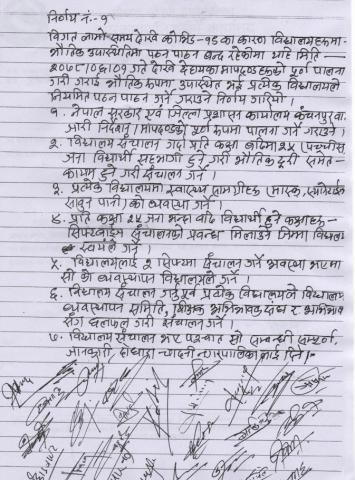 निर्णय नं.- १
विगत लामो समय देखि कोभिड-१९ का कारण विद्यालयहरूमा
भौतिक उपस्थितिमा पठन पाठन बन्द रहेकोमा यहि मिति -
२०७८।०६।०१ गते देखि देहायका मापदण्डहरूको पूर्ण पालना
गरी गराई भौतिक रूपमा उपस्थित भई प्रत्येक विद्यालयले
नियमित पठन पाठन गर्ने गराउने निर्णय गरियो ।
१. नेपाल सरकार एवं जिल्ला प्रशासन कार्यालय कंचनपुरबाट
जारी निर्देशन / मापदण्डको पूर्ण रूपमा पालना गर्ने गराउने ।
२. विद्यालय संचालन गर्दा प्रति कक्षा बढिमा २५ (पच्चीस)
जना विद्यार्थी सहभागी हुने गरी भौतिक दूरी समेत -
कायम हुने गरी संचालन गर्ने ।
३. प्रत्येक विद्यालयमा स्वास्थ्य सामग्रीहरू (मास्क, स्यानिटाईजर
साबुन पानी) को व्यवस्था गर्ने ।
४. प्रति कक्षा २५ जना भन्दा बढि विद्यार्थी हुने कक्षाहरू -
सिफ्टवाईज संचालनको प्रबन्ध मिलाउने जिम्मा विद्यालय
स्वयंले गर्ने ।
५. विद्यालयलाई २ सिफ्टमा संचालन गर्ने अवस्था भएमा
सो को व्यवस्थापन विद्यालयले गर्ने ।
६. विद्यालय संचालन गर्नु पूर्व प्रत्येक विद्यालयले विद्यालय
व्यवस्थापन समिति, शिक्षक अभिभावक संघ र अभिभावक
संग छलफल गरी संचालन गर्ने ।
७. विद्यालय संचालन भए पश्चात सो सम्बन्धी सम्पूर्ण
जानकारी दोधारा चादनी नगरपालिकालाई दिने ।